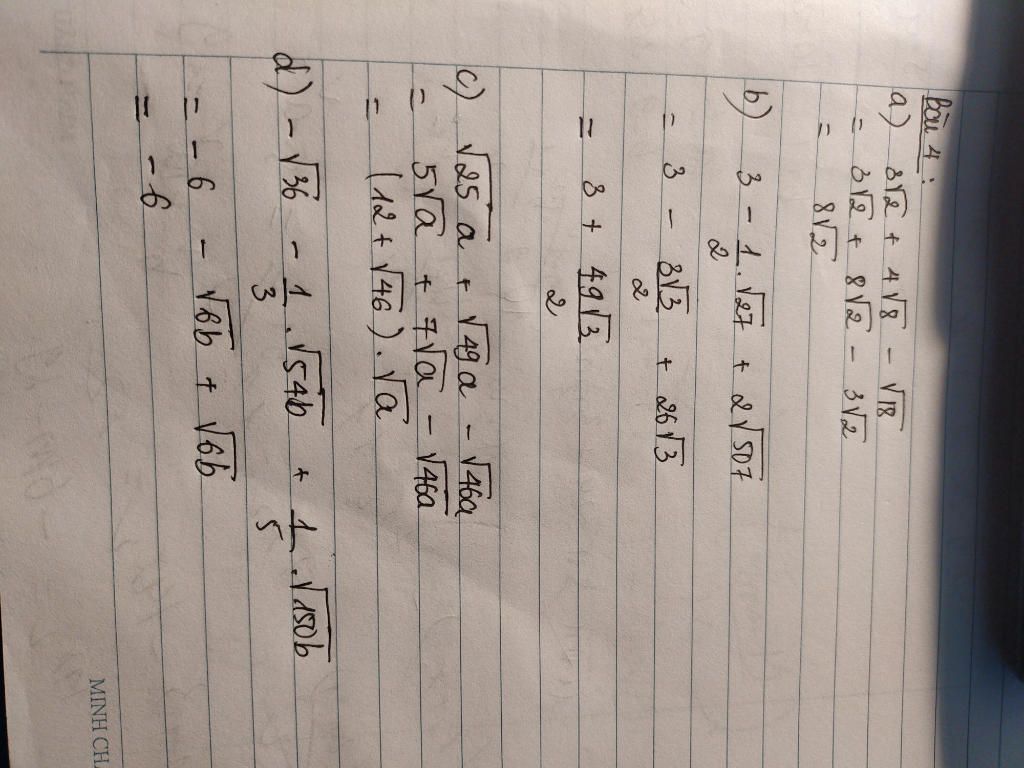 bài 4:
a) 3√2 + 4√8 - √18
= 3√2 + 8√2 - 3√2
= 8√2
b) 3 - 1/2 . √27 + 2√507
= 3 - 3√3/2 + 26√3
= 3 + 49√3/2
c) √25a + √49a - √46a
= 5√a + 7√a - √46a
= (12 + √46) . √a
d) - √36 - 1/3 . √54b + 1/5 . √150b
= - 6 - √6b + √6b
= - 6
MINH CH